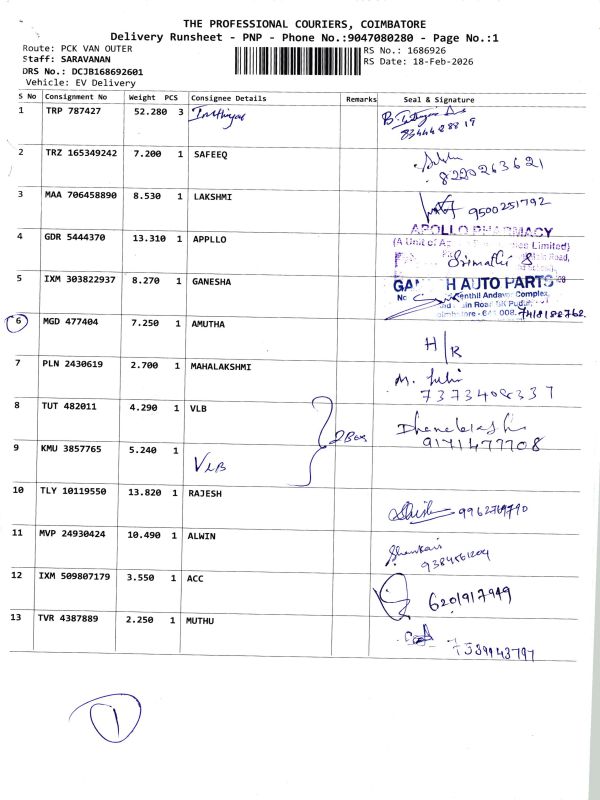 THE PROFESSIONAL COURIERS, COIMBATORE
Delivery Runsheet - PNP - Phone No.:9047080280 - Page No.:1
Route: PCK VAN OUTER
RS No.: 1686926
Staff: SARAVANAN
RS Date: 18-Feb-2026
DRS No.: DCJB168692601
Vehicle: EV Delivery
S No Consignment No Weight PCS Consignee Details Remarks Seal & Signature
1 TRP 787427 52.280 3
8344428819
2 TRZ 165349242 7.200 1 SAFEEQ
8220263621
3 MAA 706458890 8.530 1 LAKSHMI
9500251792
APOLLO PHARMACY
4 GDR 5444370 13.310 1 APPLLO
(A Unit of Limited)
Road,
Srimathi S
5 IXM 303822937 8.270 1 GANESHA
H AUTO PARTS
No enthil Andavar Complex,
in Road
641 008. 7418188762
6 MGD 477404 7.250 1 AMUTHA
H/R
7 PLN 2430619 2.700 1 MAHALAKSHMI
M.
7373408337
8 TUT 482011 4.290 1 VLB
2 Box
9171477708
9 KMU 3857765 5.240 1
VLB
10 TLY 10119550 13.820 1 RAJESH
9962769790
11 MVP 24930424 10.490 1 ALWIN
9384561204
12 IXM 509807179 3.550 1 ACC
6201917949
13 TVR 4387889 2.250 1 MUTHU
7339943797
1